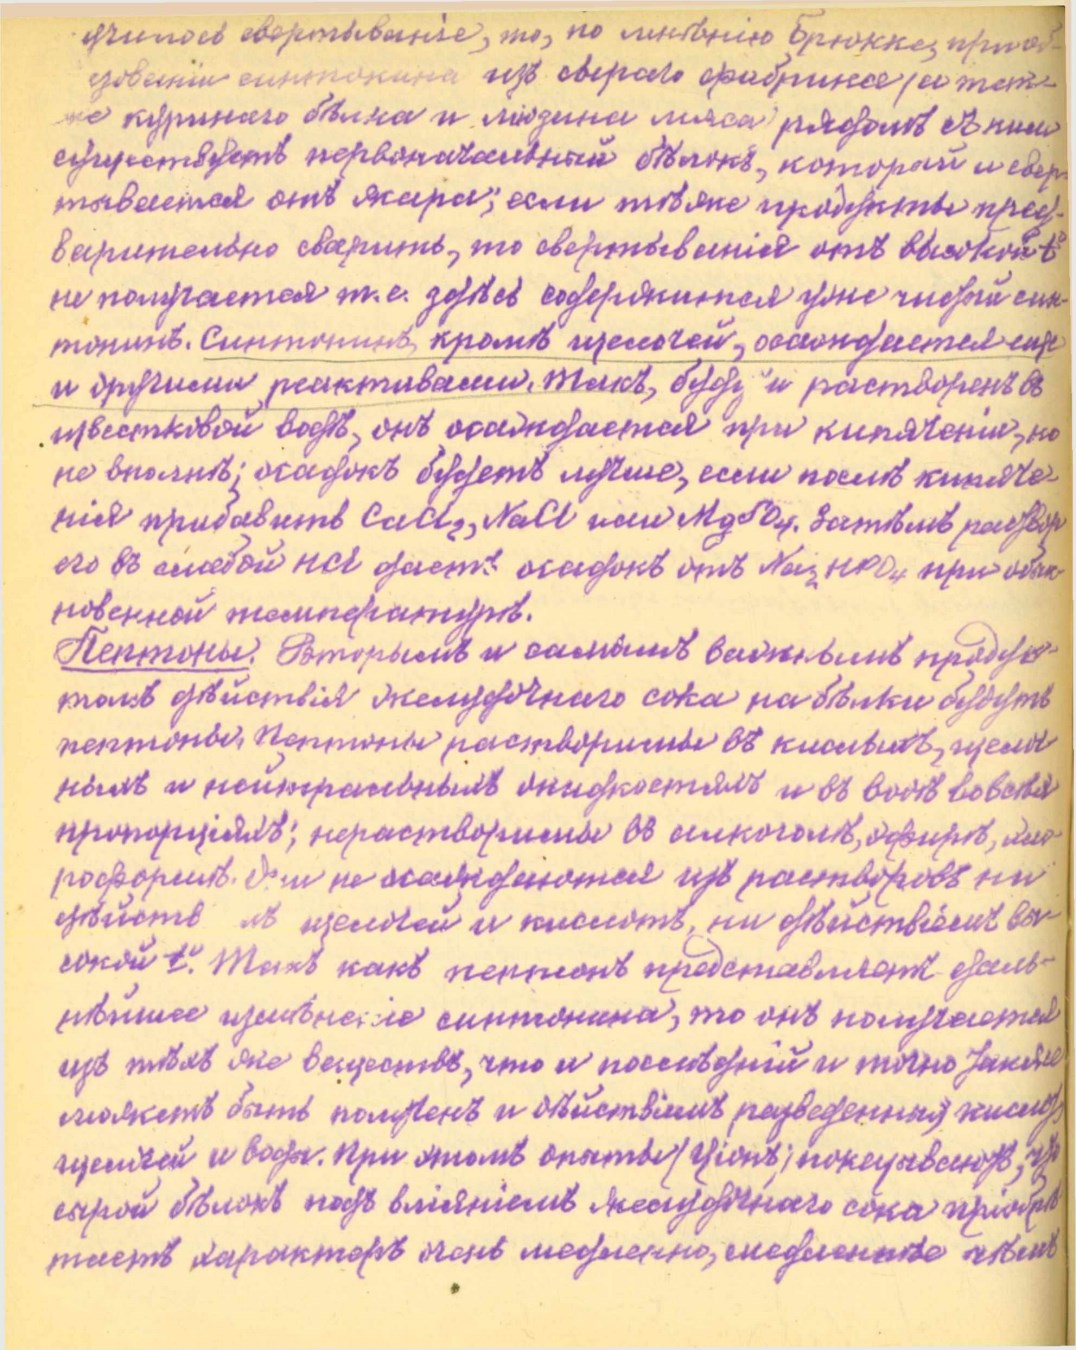 училось свертыванiе, то, по мнѣнiю Брюкке, при об-
зованiи синтонина изъ сыраго фибрина (а так-
же куринаго бѣлка и мiозина мяса) рядомъ съ ним
существуетъ первоначальный бѣлокъ, который и свер-
тывается отъ жара; если тѣ же продукты пред-
варительно сварить, то свертыванiя отъ высокой t°
не получается т.е. здѣсь содержится уже чистый син-
тонинъ. Синтонинъ, кромѣ щелочей, осаждается еще
и другими реактивами. Такъ, будучи растворенъ въ
известковой водѣ, онъ осаждается при кипяченiи, но
не вполнѣ; осадокъ будетъ лучше, если послѣ кипяче-
нiя прибавить CaCl2, NaCl или MgSO4. Затѣмъ раствор
его въ слабой HCl даетъ осадокъ отъ Na2HPO4 при обык-
новенной температурѣ.
Пептоны. Вторымъ и самымъ важнымъ продук-
томъ дѣйствiя желудочнаго сока на бѣлки будутъ
пептоны. Пептоны растворимы въ кислыхъ, щелоч
ныхъ и нейтральныхъ жидкостяхъ и въ водѣ во всѣхъ
пропорцiяхъ; нерастворимы въ алкоголѣ, эфирѣ, хло-
роформѣ. Они не осаждаются изъ растворовъ ни
дѣйств мъ щелочей и кислотъ, ни дѣйствiемъ вы-
сокой t°. Такъ какъ пептонъ представляетъ даль-
нѣйшее измѣненiе синтонина, то онъ получается
изъ тѣхъ же веществъ, что и послѣднiй и точно также
можетъ быть полученъ и дѣйствiемъ разведенныхъ кислотъ,
щелочей и воды. При этомъ опыты (Цiонъ) показываютъ, что
сырой бѣлокъ подъ влiянiемъ желудочнаго сока прiобрѣ
таетъ характеръ очень медленно, медленнѣе чѣмъ